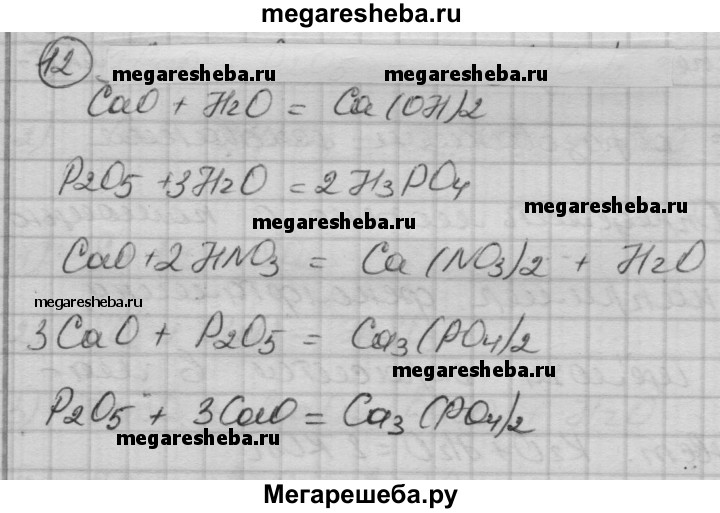 megaresheba.ru
12
megaresheba.ru megaresheba.ru
CaO + H2O = Ca(OH)2
P2O5 + 3H2O = 2H3PO4
megaresheba.ru
megaresheba.ru
CaO + 2HNO3 = Ca(NO3)2 + H2O
megaresheba.ru
3CaO + P2O5 = Ca3(PO4)2
megaresheba.ru
P2O5 + 3CaO = Ca3(PO4)2
megaresheba.ru
Мегарешеба.ру